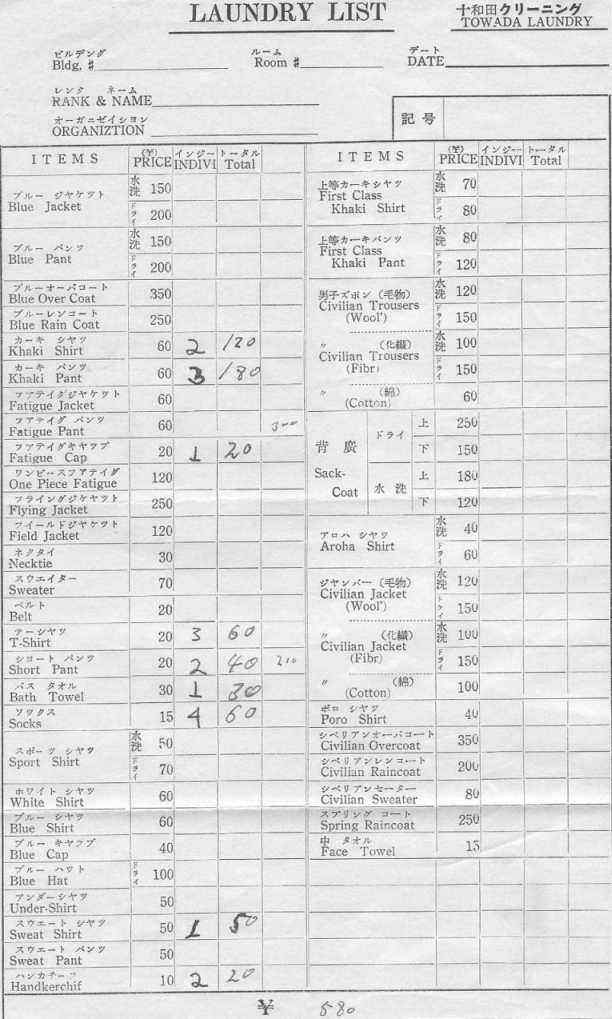 LAUNDRY LIST
十和田クリーニング
TOWADA LAUNDRY
ビルデング ルーム デート
Bldg, # Room # DATE
レンク ネーム
RANK & NAME
オーガニゼイシヨン
ORGANIZTION
記号
ITEMS (¥) PRICE インジー INDIVI トータル Total
ブルー ジヤケツト 水洗 150
Blue Jacket ドライ 200
ブルー パンツ 水洗 150
Blue Pant ドライ 200
ブルーオーバコート
Blue Over Coat 350
ブルーレンコート
Blue Rain Coat 250
カーキ シヤツ
Khaki Shirt 60 2 120
カーキ パンツ
Khaki Pant 60 3 180
フアテイグジヤケツト
Fatigue Jacket 60
フアテイグ パンツ
Fatigue Pant 60 300
フアテイグキヤツプ
Fatigue Cap 20 1 20
ワンピースフアテイグ
One Piece Fatigue 120
フライングジケヤツト
Flying Jacket 250
フイールドジヤケツト
Field Jacket 120
ネクタイ
Necktie 30
スウエイター
Sweater 70
ベルト
Belt 20
テーシヤツ
T-Shirt 20 3 60
シヨート パンツ
Short Pant 20 2 40 210
バス タオル
Bath Towel 30 1 30
ソツクス
Socks 15 4 60
スポーツ シヤツ 水洗 50
Sport Shirt ドライ 70
ホワイト シヤツ
White Shirt 60
ブルー シヤツ
Blue Shirt 60
ブルー キヤツプ
Blue Cap 40
ブルー ハツト
Blue Hat ドライ 100
アンダーシヤツ
Under-Shirt 50
スウエート シヤツ
Sweat Shirt 50 1 50
スウエート パンツ
Sweat Pant 50
ハンカチーフ
Handkerchif 10 2 20
ITEMS (¥) PRICE インジー INDIVI トータル Total
上等カーキシヤツ 水洗 70
First Class
Khaki Shirt ドライ 80
上等カーキパンツ 水洗 80
First Class
Khaki Pant ドライ 120
男子ズボン (毛物) 水洗 120
Civilian Trousers
(Wool') ドライ 150
〃 (化繊) 水洗 100
Civilian Trousers
(Fibr) ドライ 150
〃 (綿)
(Cotton) 60
背廣 Sack-Coat ドライ 上 250
下 150
水洗 上 180
下 120
アロハ シヤツ 水洗 40
Aroha Shirt ドライ 60
ジヤンバー (毛物) 水洗 120
Civilian Jacket
(Wool') ドライ 150
〃 (化繊) 水洗 100
Civilian Jacket
(Fibr) ドライ 150
〃 (綿)
(Cotton) 100
ポロ シヤツ
Poro Shirt 40
シベリアンオーバコート
Civilian Overcoat 350
シベリアンレンコート
Civilian Raincoat 200
シベリアンセーター
Civilian Sweater 80
スプリング コート
Spring Raincoat 250
中 タオル
Face Towel 15
¥ 580